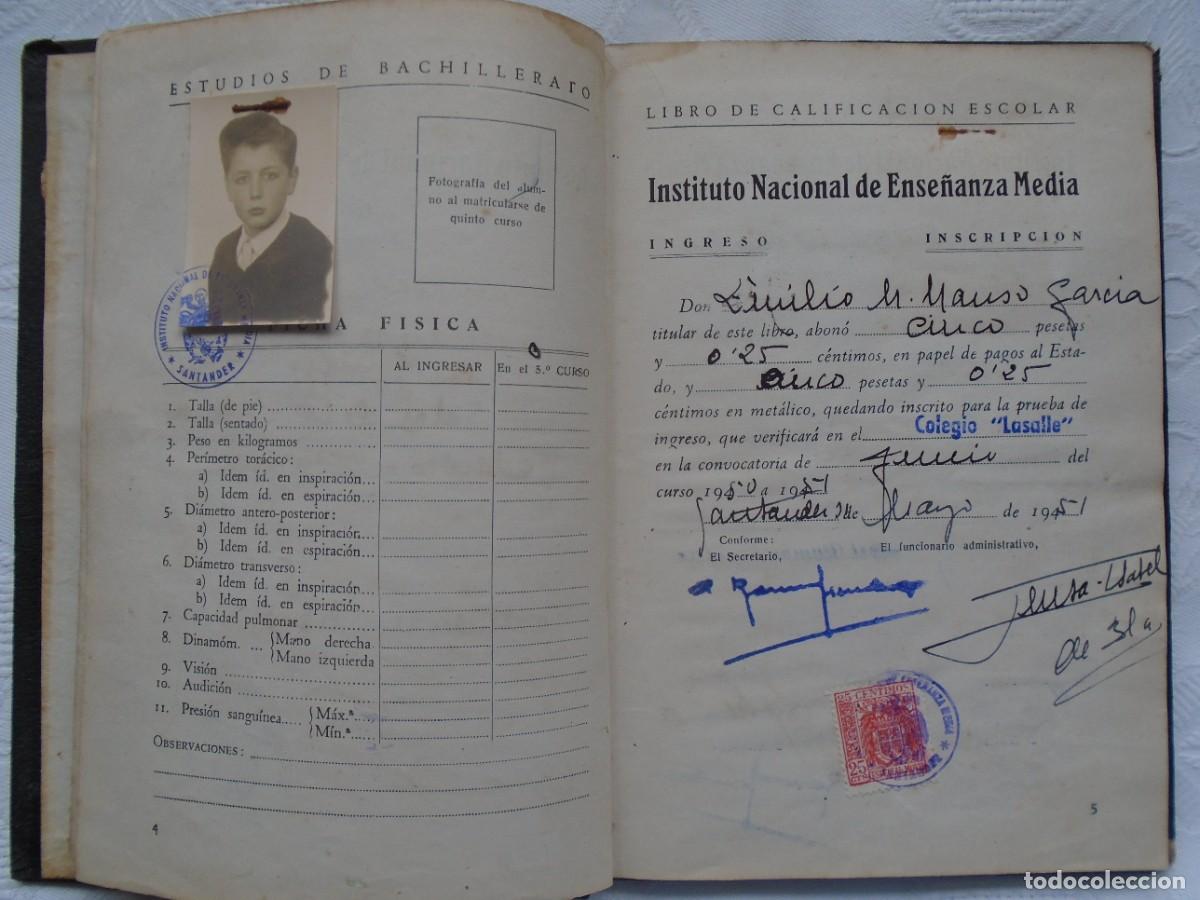 ESTUDIOS DE BACHILLERATO
Fotografía del alum-
no al matricularse de
quinto curso
INSTITUTO NACIONAL DE ENSEÑANZA MEDIA
* SANTANDER *
FICHA FISICA
AL INGRESAR
En el 5.º CURSO
1. Talla (de pie)
2. Talla (sentado)
3. Peso en kilogramos
4. Perímetro torácico:
a) Idem íd. en inspiración...
b) Idem íd. en espiración...
5. Diámetro antero-posterior:
a) Idem íd. en inspiración
b) Idem íd. en espiración...
6. Diámetro transverso:
a) Idem íd. en inspiración
b) Idem íd. en espiración.
7. Capacidad pulmonar
8. Dinamóm. ... {Mano derecha
{Mano izquierda
9. Visión
10. Audición
11. Presión sanguínea..... {Máx.ª
{Mín.ª
OBSERVACIONES:
4
LIBRO DE CALIFICACION ESCOLAR
Instituto Nacional de Enseñanza Media
INGRESO INSCRIPCION
Don Emilio M. Manso Garcia
titular de este libro, abonó cinco pesetas
y 0'25 céntimos, en papel de pagos al Esta-
do, y cinco pesetas y 0'25
céntimos en metálico, quedando inscrito para la prueba de
ingreso, que verificará en el Colegio "Lasalle"
en la convocatoria de Junio del
curso 1950 a 1951
Santander 24 de Mayo de 1951
Conforme:
El Secretario, El funcionario administrativo,
de
25 CENTIMOS
25
ENSEÑANZA MEDIA *
5
todocoleccion